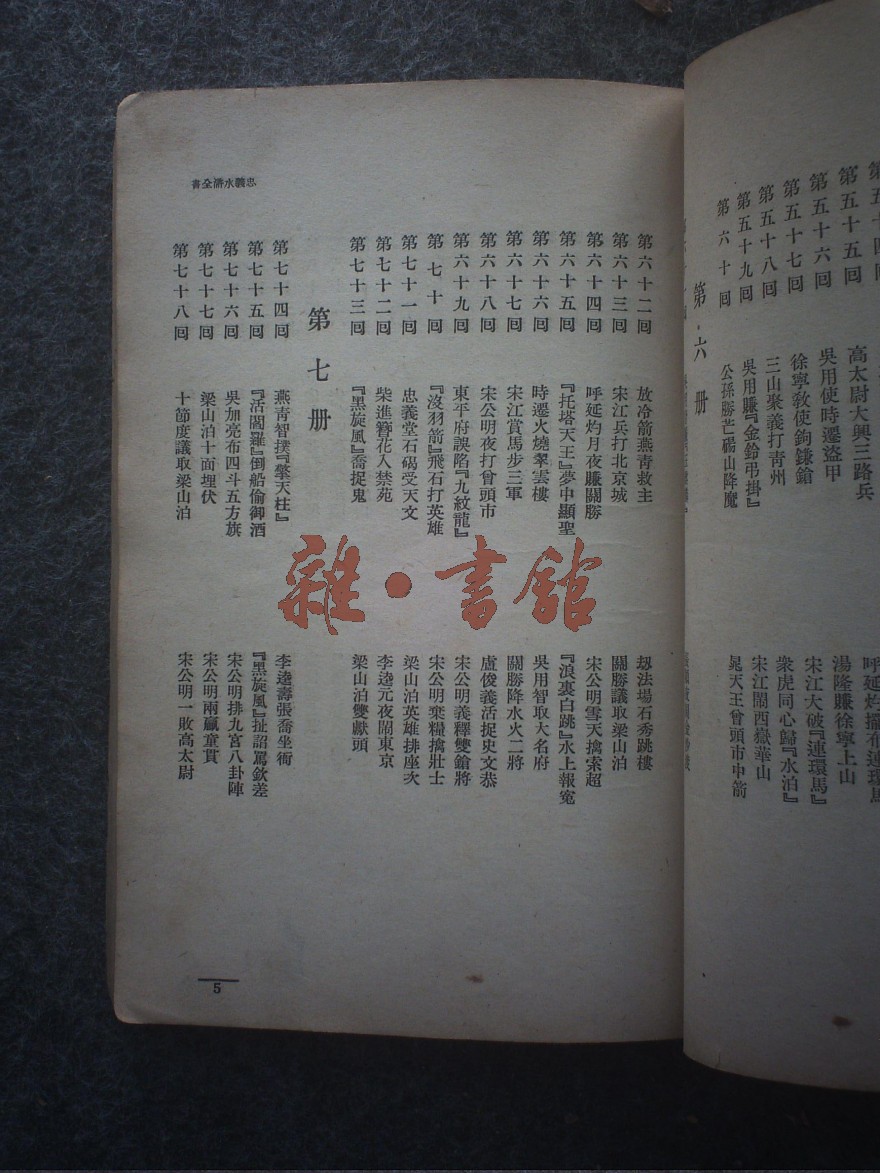 第五十五回　高太尉大興三路兵　呼延灼擺布連環馬
第五十六回　吳用使時遷盜甲　湯隆賺徐寧上山
第五十七回　徐寧敎使鉤鐮鎗　宋江大破『連環馬』
第五十八回　三山聚義打青州　衆虎同心歸『水泊』
第五十九回　吳用賺『金鈴弔掛』　宋江鬧西嶽華山
第六十回　公孫勝芒碭山降魔　晁天王曾頭市中箭
第六册
忠義水滸全書
第六十二回　放冷箭燕青救主　刼法場石秀跳樓
第六十三回　宋江兵打北京城　關勝議取梁山泊
第六十四回　呼延灼月夜賺關勝　宋公明雪天擒索超
第六十五回　『托塔天王』夢中顯聖　『浪裏白跳』水上報寃
第六十六回　時遷火燒翠雲樓　吳用智取大名府
第六十七回　宋江賞馬步三軍　關勝降水火二將
第六十八回　宋公明夜打曾頭市　盧俊義活捉史文恭
第六十九回　東平府誤陷『九紋龍』　宋公明義釋雙鎗將
第七十回　『沒羽箭』飛石打英雄　宋公明棄糧擒壯士
第七十一回　忠義堂石碣受天文　梁山泊英雄排座次
第七十二回　柴進簪花入禁苑　李逵元夜鬧東京
第七十三回　『黑旋風』喬捉鬼　梁山泊雙獻頭
第七册
第七十四回　燕青智撲『擎天柱』　李逵壽張喬坐衙
第七十五回　『活閻羅』倒船偷御酒　『黑旋風』扯詔罵欽差
第七十六回　吳加亮布四斗五方旗　宋公明排九宮八卦陣
第七十七回　梁山泊十面埋伏　宋公明兩贏童貫
第七十八回　十節度議取梁山泊　宋公明一敗高太尉
5
雜·書館